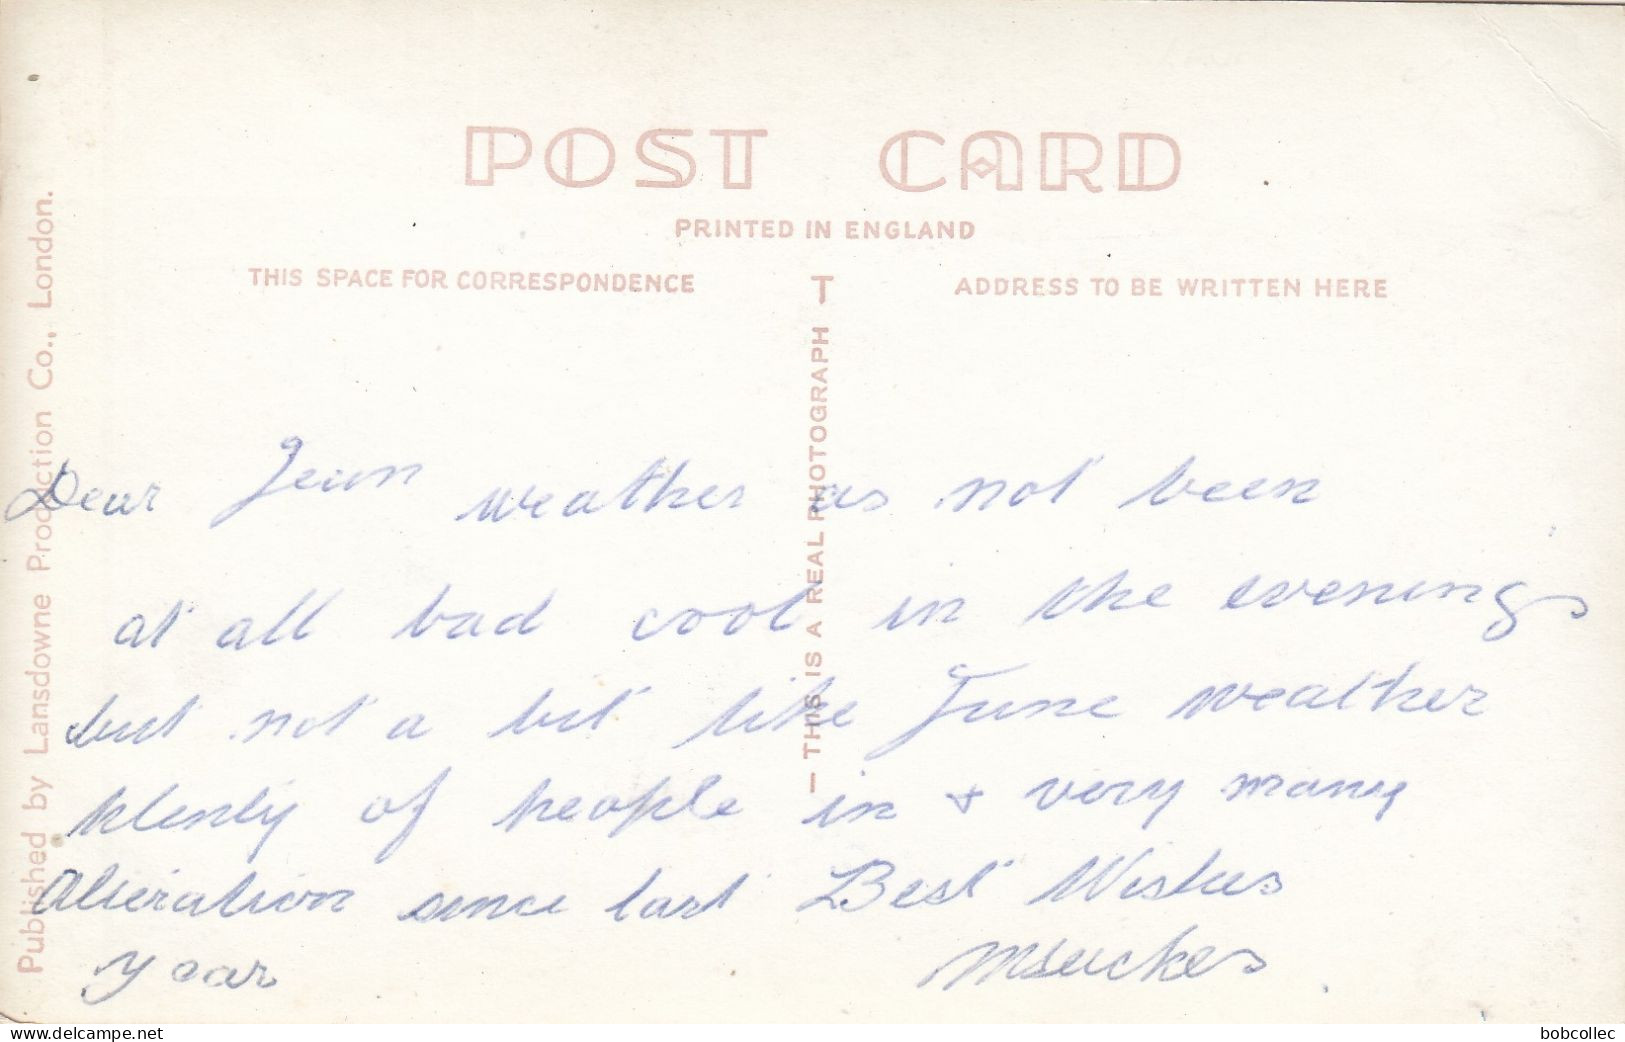 POST CARD
PRINTED IN ENGLAND
THIS SPACE FOR CORRESPONDENCE
ADDRESS TO BE WRITTEN HERE
Published by Lansdowne Production Co., London.
T
— THIS IS A REAL PHOTOGRAPH
Dear Jean weather as not been
at all bad cool in the evenings
but not a bit like June weather
plenty of people in + very many
Alteration since last Best Wishes
year
www.delcampe.net
bobcollec